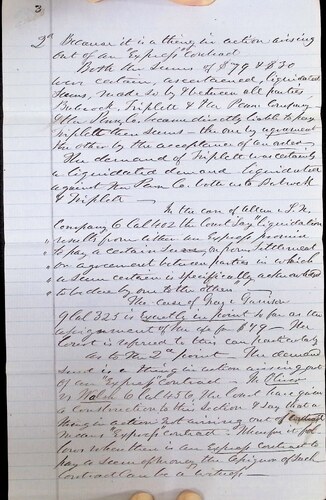 3
2d Because it is a thing in action arising
out of an Express Contract
Both the sums of $79 & $30
were certain, ascertained, liquidated
sums, made so by & between all parties
Babcock, Triplett & the Penn Company
& the Penn Co. became directly liable to pay
Triplett these sums – the one by agreement
the other by the acceptance of an order
The demand of Triplett was certainly
a liquidated demand liquidated
against the Penn Co. both as to Babcock
& Triplett
In the case of
Company 6 Cal 602 the Court say "liquidation
results from either an Express promise
to pay a certain sum, or from settlement
or agreement between parties in which
a sum certain is specifically acknowledged
to be due by one to the other"
The case of Gray v Garrison
9 Cal 325 is exactly in point so far as the
assignment of the for $79 – The
Court is refered to this case particularly
as to the 2d point – The demand
sued is a thing in action arising out
of an Express Contract – In Oliver
vs Walsh 6 Cal 456, the Court have given
a construction to this section & say that a
thing in action not arising out of contract
means Express contract – Therefor it fol
lows when there is an Express contract to
pay a sum of money the assignor of such
contract can be a witness –